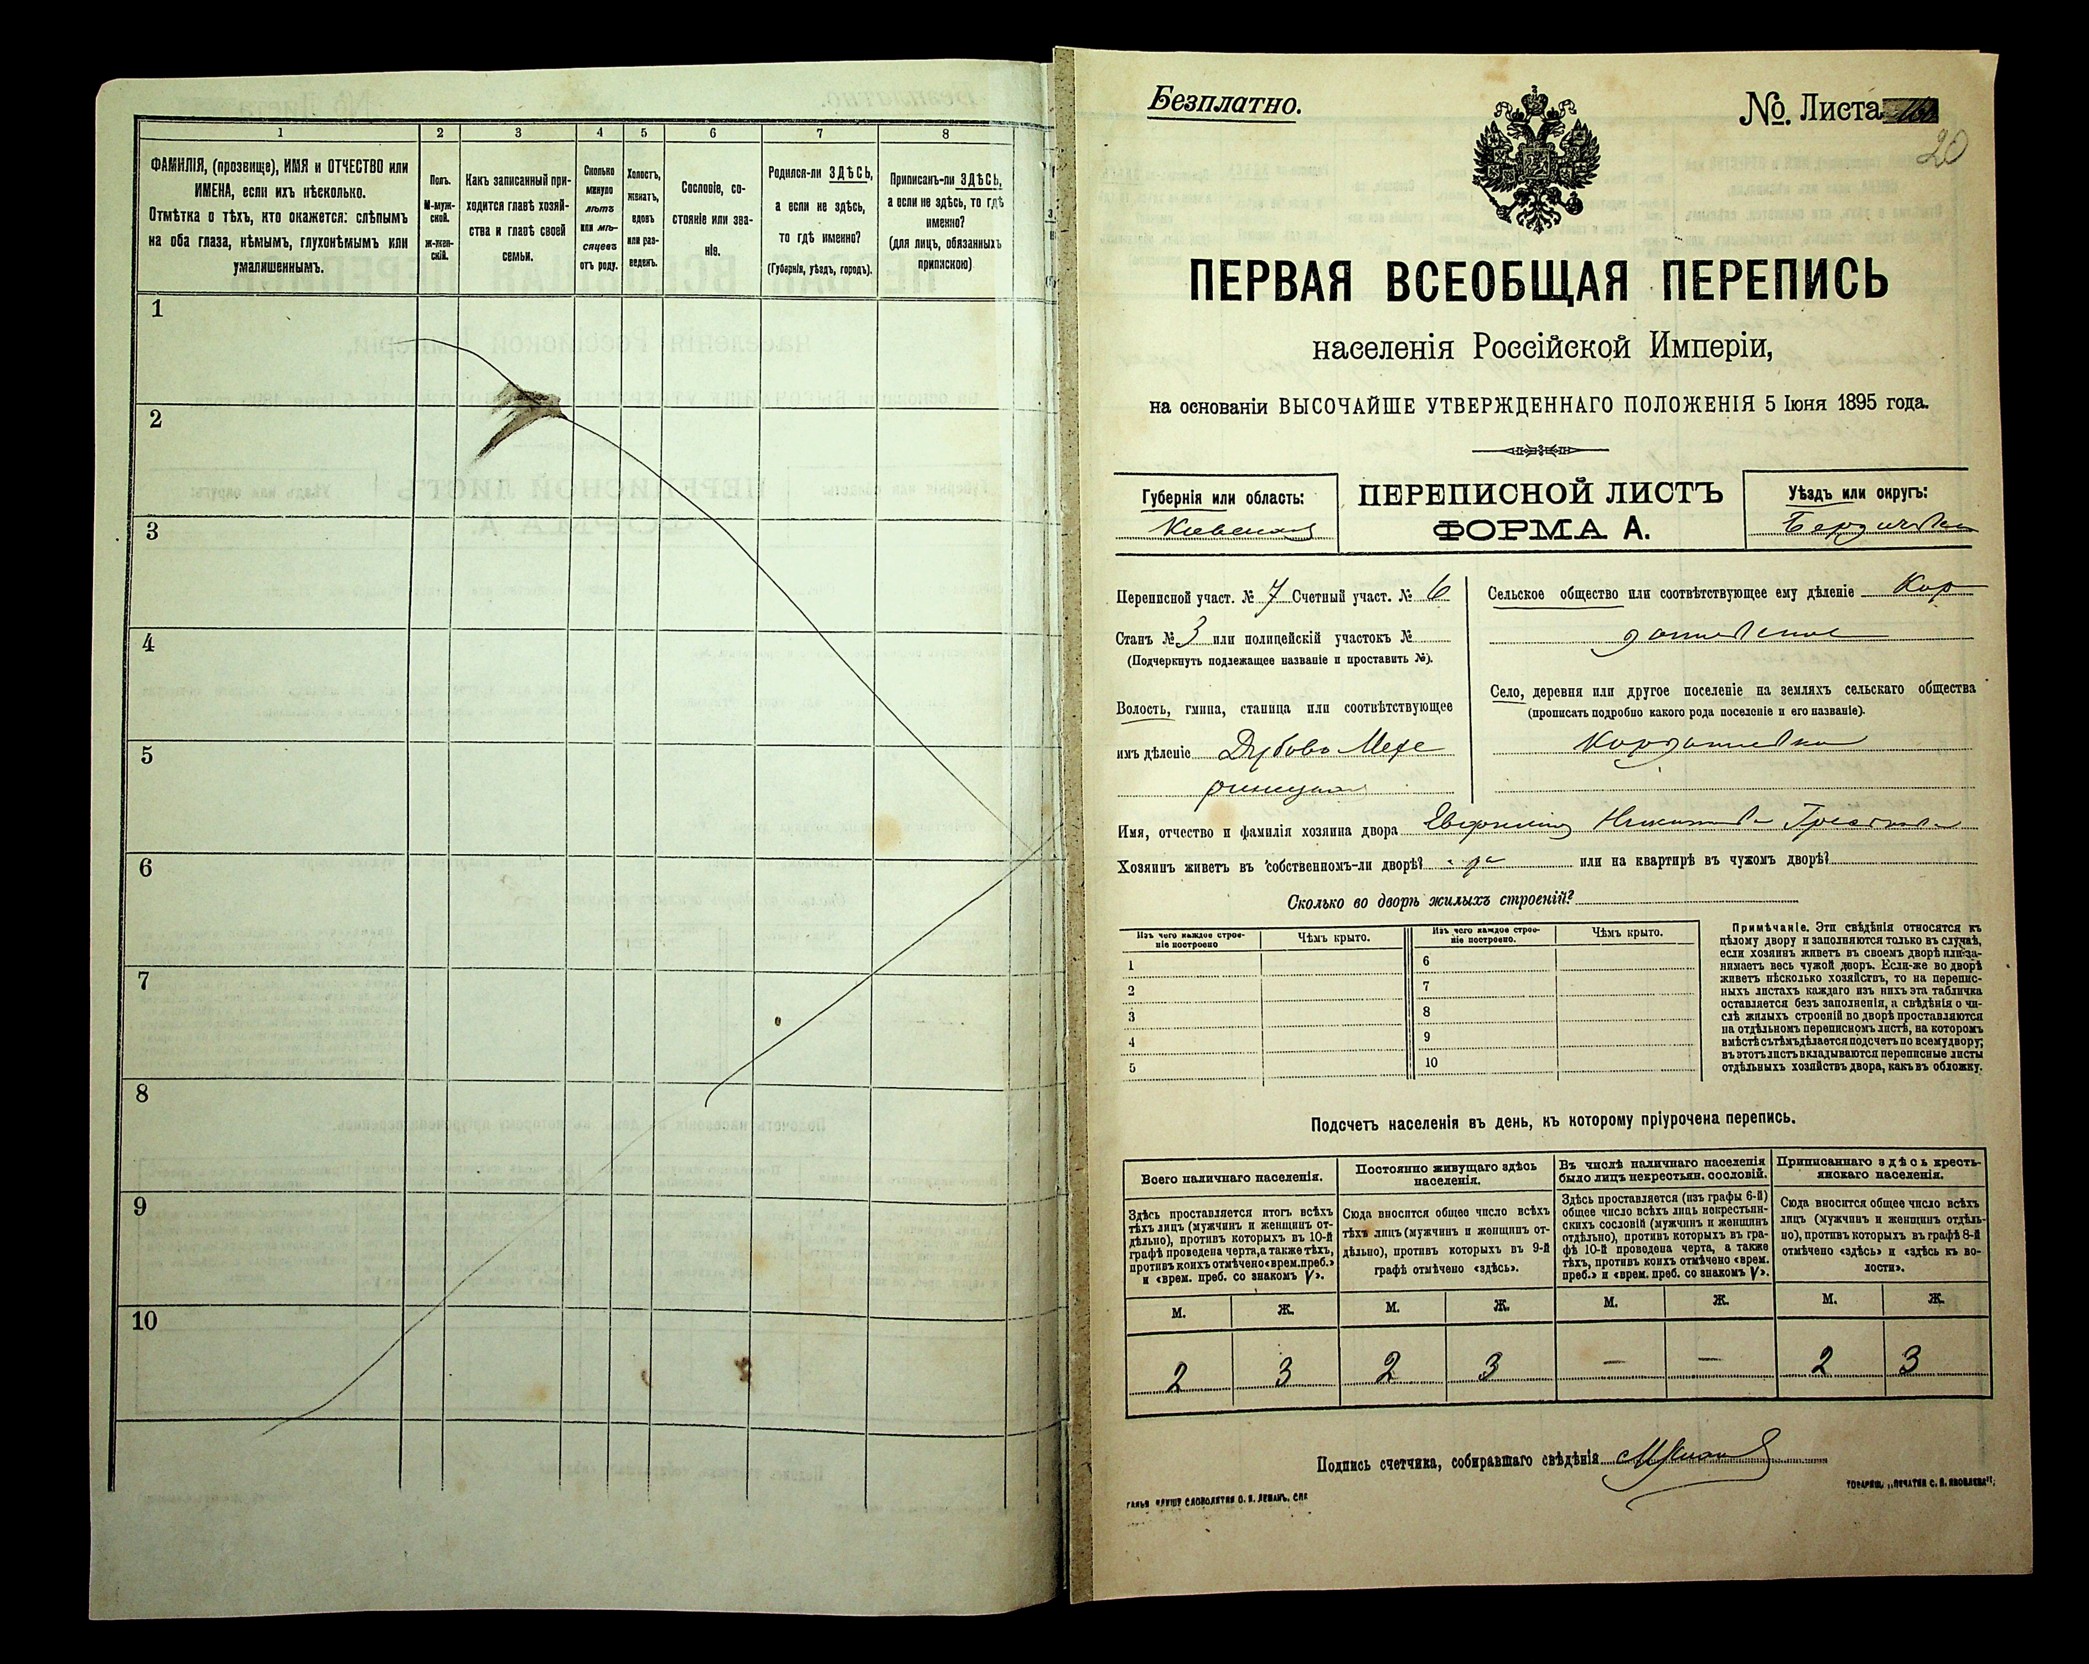 1
2
3
4
5
6
7
8
ФАМИЛІЯ, (прозвище), ИМЯ и ОТЧЕСТВО или
ИМЕНА, если ихъ нѣсколько.
Отмѣтка о тѣхъ, кто окажется: слѣпымъ
на оба глаза, нѣмымъ, глухонѣмымъ или
умалишеннымъ.
Полъ.
М-муж-
ской.
ж-жен-
скій.
Какъ записанный при-
ходится главѣ хозяй-
ства и главѣ своей
семьи.
Сколько
минуло
лѣтъ
или мѣ-
сяцевъ
отъ роду.
Холостъ,
женатъ,
вдовъ
или раз-
веденъ.
Сословіе, со-
стояніе или зва-
ніе.
Родился-ли ЗДѢСЬ,
а если не здѣсь,
то гдѣ именно?
(Губернія, уѣздъ, городъ).
Приписанъ-ли ЗДѢСЬ,
а если не здѣсь, то гдѣ
именно?
(для лицъ, обязанныхъ
припискою)
1
2
3
4
5
6
7
8
9
10
Безплатно.
№. Листа
20
ПЕРВАЯ ВСЕОБЩАЯ ПЕРЕПИСЬ
населенія Россійской Имперіи,
на основаніи ВЫСОЧАЙШЕ УТВЕРЖДЕННАГО ПОЛОЖЕНІЯ 5 Іюня 1895 года.
Губернія или область:
Киевская
ПЕРЕПИСНОЙ ЛИСТЪ
ФОРМА А.
Уѣздъ или округъ:
Переписной участ. № 7 Счетный участ. № 6
Станъ № 3 или полицейскій участокъ №
(Подчеркнуть подлежащее названіе и проставить №).
Волость, гмина, станица или соотвѣтствующее
имъ дѣленіе Дубово Мехе
ринецкая
Сельское общество или соотвѣтствующее ему дѣленіе Кор
Село, деревня или другое поселеніе на земляхъ сельскаго общества
(прописать подробно какого рода поселеніе и его названіе).
Имя, отчество и фамилія хозяина двора
Хозяинъ живетъ въ собственномъ-ли дворѣ? да или на квартирѣ въ чужомъ дворѣ?
Сколько во дворѣ жилыхъ строеній?
Изъ чего каждое строе-
ніе построено
Чѣмъ крыто.
Изъ чего каждое строе-
ніе построено.
Чѣмъ крыто.
1
2
3
4
5
6
7
8
9
10
Примѣчаніе. Эти свѣдѣнія относятся къ
цѣлому двору и заполняются только въ случаѣ,
если хозяинъ живетъ въ своемъ дворѣ или за-
нимаетъ весь чужой дворъ. Если-же во дворѣ
живетъ нѣсколько хозяйствъ, то на перепис-
ныхъ листахъ каждаго изъ нихъ эта табличка
оставляется безъ заполненія, а свѣдѣнія о чи-
слѣ жилыхъ строеній во дворѣ проставляются
на отдѣльномъ переписномъ листѣ, на которомъ
вмѣстѣ съ тѣмъ дѣлается подсчетъ по всему двору;
въ этотъ листъ вкладываются переписные листы
отдѣльныхъ хозяйствъ двора, какъ въ обложку.
Подсчетъ населенія въ день, къ которому пріурочена перепись.
Всего наличнаго населенія.
Здѣсь проставляется итогъ всѣхъ
тѣхъ лицъ (мужчинъ и женщинъ от-
дѣльно), противъ которыхъ въ 10-й
графѣ проведена черта, а также тѣхъ,
противъ коихъ отмѣчено «врем. преб.»
и «врем. преб. со знакомъ V».
Постоянно живущаго здѣсь
населенія.
Сюда вносится общее число всѣхъ
тѣхъ лицъ (мужчинъ и женщинъ от-
дѣльно), противъ которыхъ въ 9-й
графѣ отмѣчено «здѣсь».
Въ числѣ наличнаго населенія
было лицъ некрестьян. сословій.
Здѣсь проставляется (изъ графы 6-й)
общее число всѣхъ лицъ некрестьян-
скихъ сословій (мужчинъ и женщинъ
отдѣльно), противъ которыхъ въ гра-
фѣ 10-й проведена черта, а также
тѣхъ, противъ коихъ отмѣчено «врем.
преб.» и «врем. преб. со знакомъ V».
Приписаннаго здѣсь кресть-
янскаго населенія.
Сюда вносится общее число всѣхъ
лицъ (мужчинъ и женщинъ отдѣль-
но), противъ которыхъ въ графѣ 8-й
отмѣчено «здѣсь» и «здѣсь къ во-
лости».
М. Ж. М. Ж. М. Ж. М. Ж.
2 3 2 3 — — 2 3
Подпись счетчика, собиравшаго свѣдѣнія
ТОВАРИЩ. „ПЕЧАТНЯ С. П. ЯКОВЛЕВА“;